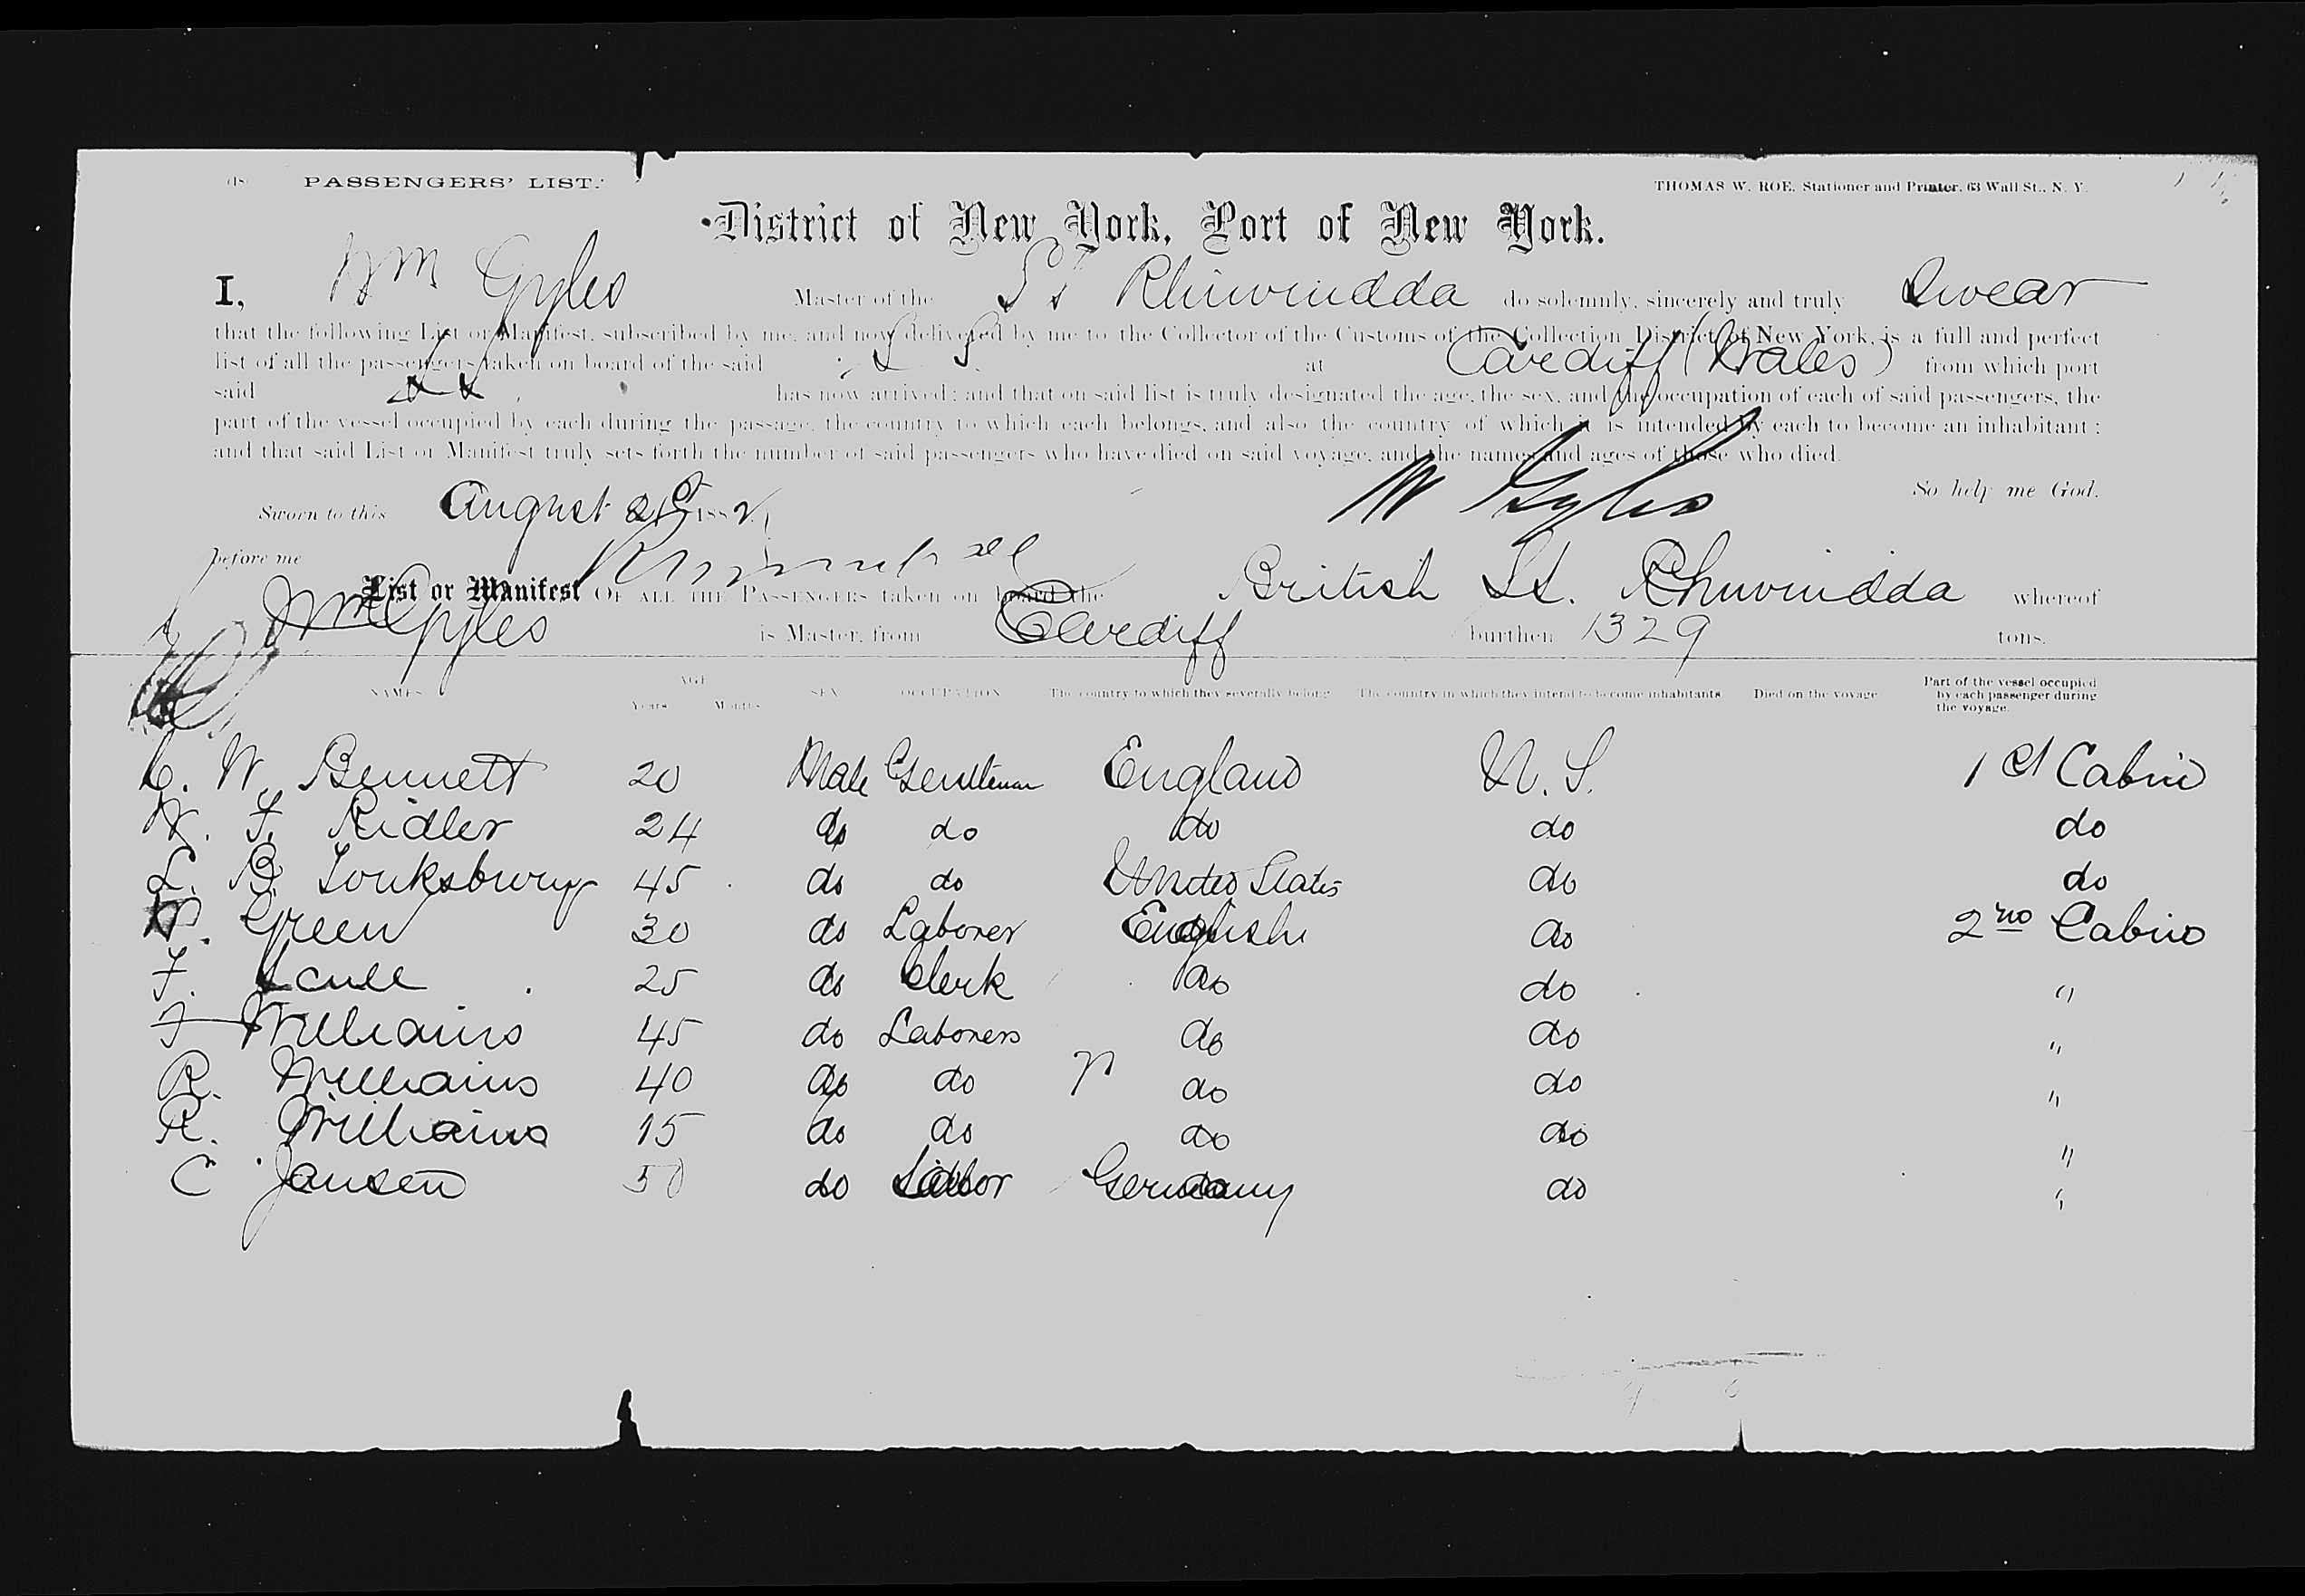 PASSENGERS' LIST.
THOMAS W. ROE, Stationer and Printer, 63 Wall St., N. Y.
District of New York, Port of New York.
I, Wm Gyles Master of the SS Rhiwindda do solemnly, sincerely and truly Swear
that the following List or Manifest, subscribed by me, and now delivered by me to the Collector of the Customs of the Collection District of New York, is a full and perfect
list of all the passengers taken on board of the said SS at Cardiff (Wales) from which port
said SS has now arrived; and that on said list is truly designated the age, the sex, and the occupation of each of said passengers, the
part of the vessel occupied by each during the passage, the country to which each belongs, and also the country of which it is intended by each to become an inhabitant;
and that said List or Manifest truly sets forth the number of said passengers who have died on said voyage, and the names and ages of those who died.
So help me God.
Sworn to this August 1882 W Gyles
before me
List or Manifest OF ALL THE PASSENGERS taken on board the British SS. Rhiwindda whereof
Wm Gyles is Master, from Cardiff burthen 1329 tons.
NAMES AGE Years Months SEX OCCUPATION The country to which they severally belong The country in which they intend to become inhabitants Died on the voyage Part of the vessel occupied by each passenger during the voyage.
C. W. Bennett 20 Male Gentleman England U. S. 1 st Cabin
W. F. Ridler 24 do do do do do
L. B. Touksbury 45 do do United States do do
W. Green 30 do Laborer English do 2nd Cabin
F. Scull 25 do Clerk do do "
T Williams 45 do Laborers do do "
R. Williams 40 do do do do "
R. Williams 15 do do do do "
C Jansen 50 do Germany do "